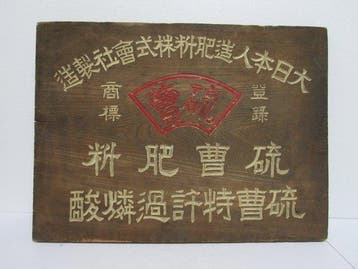 大日本人造肥料株式會社製造
登録
硫曹
商標
硫曹肥料
硫曹特許過燐酸